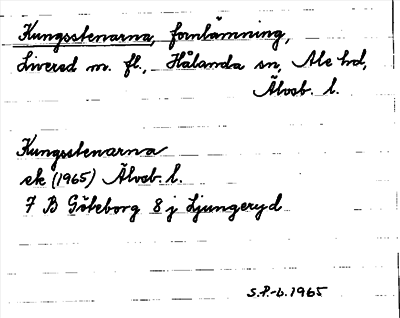 Kungsstenarna, fornlämning,
Livered m. fl., Hålanda sn, Ale hd,
Älvsb. l.
Kungsstenarna
ek (1965) Älvsb. l.
7 B Göteborg 8 j Ljungeryd
S.P.-b. 1965